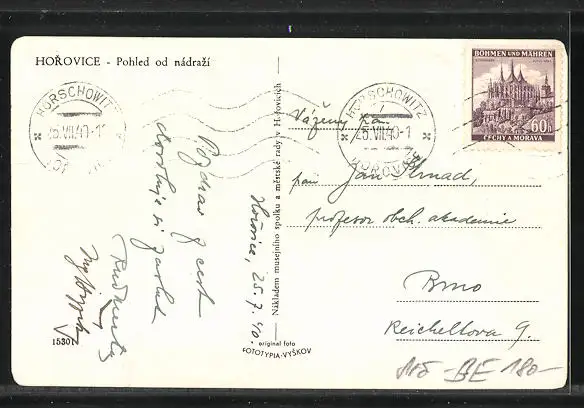 HOŘOVICE - Pohled od nádraží
HORSCHOWITZ
25.VII.40-1
Pozdrav z cest
Hořovice, 25.7.40.
15301
Nákladem musejního spolku a městské rady v Hořovicích
original foto
FOTOTYPIA-VYŠKOV
HORSCHOWITZ
25.VII.40-1
HOŘOVICE
BÖHMEN UND MÄHREN
60h
ČECHY A MORAVA
Vážený pan
pan Jan Strnad,
profesor obch. akademie
Brno
Reichellova 9.
BE 180-